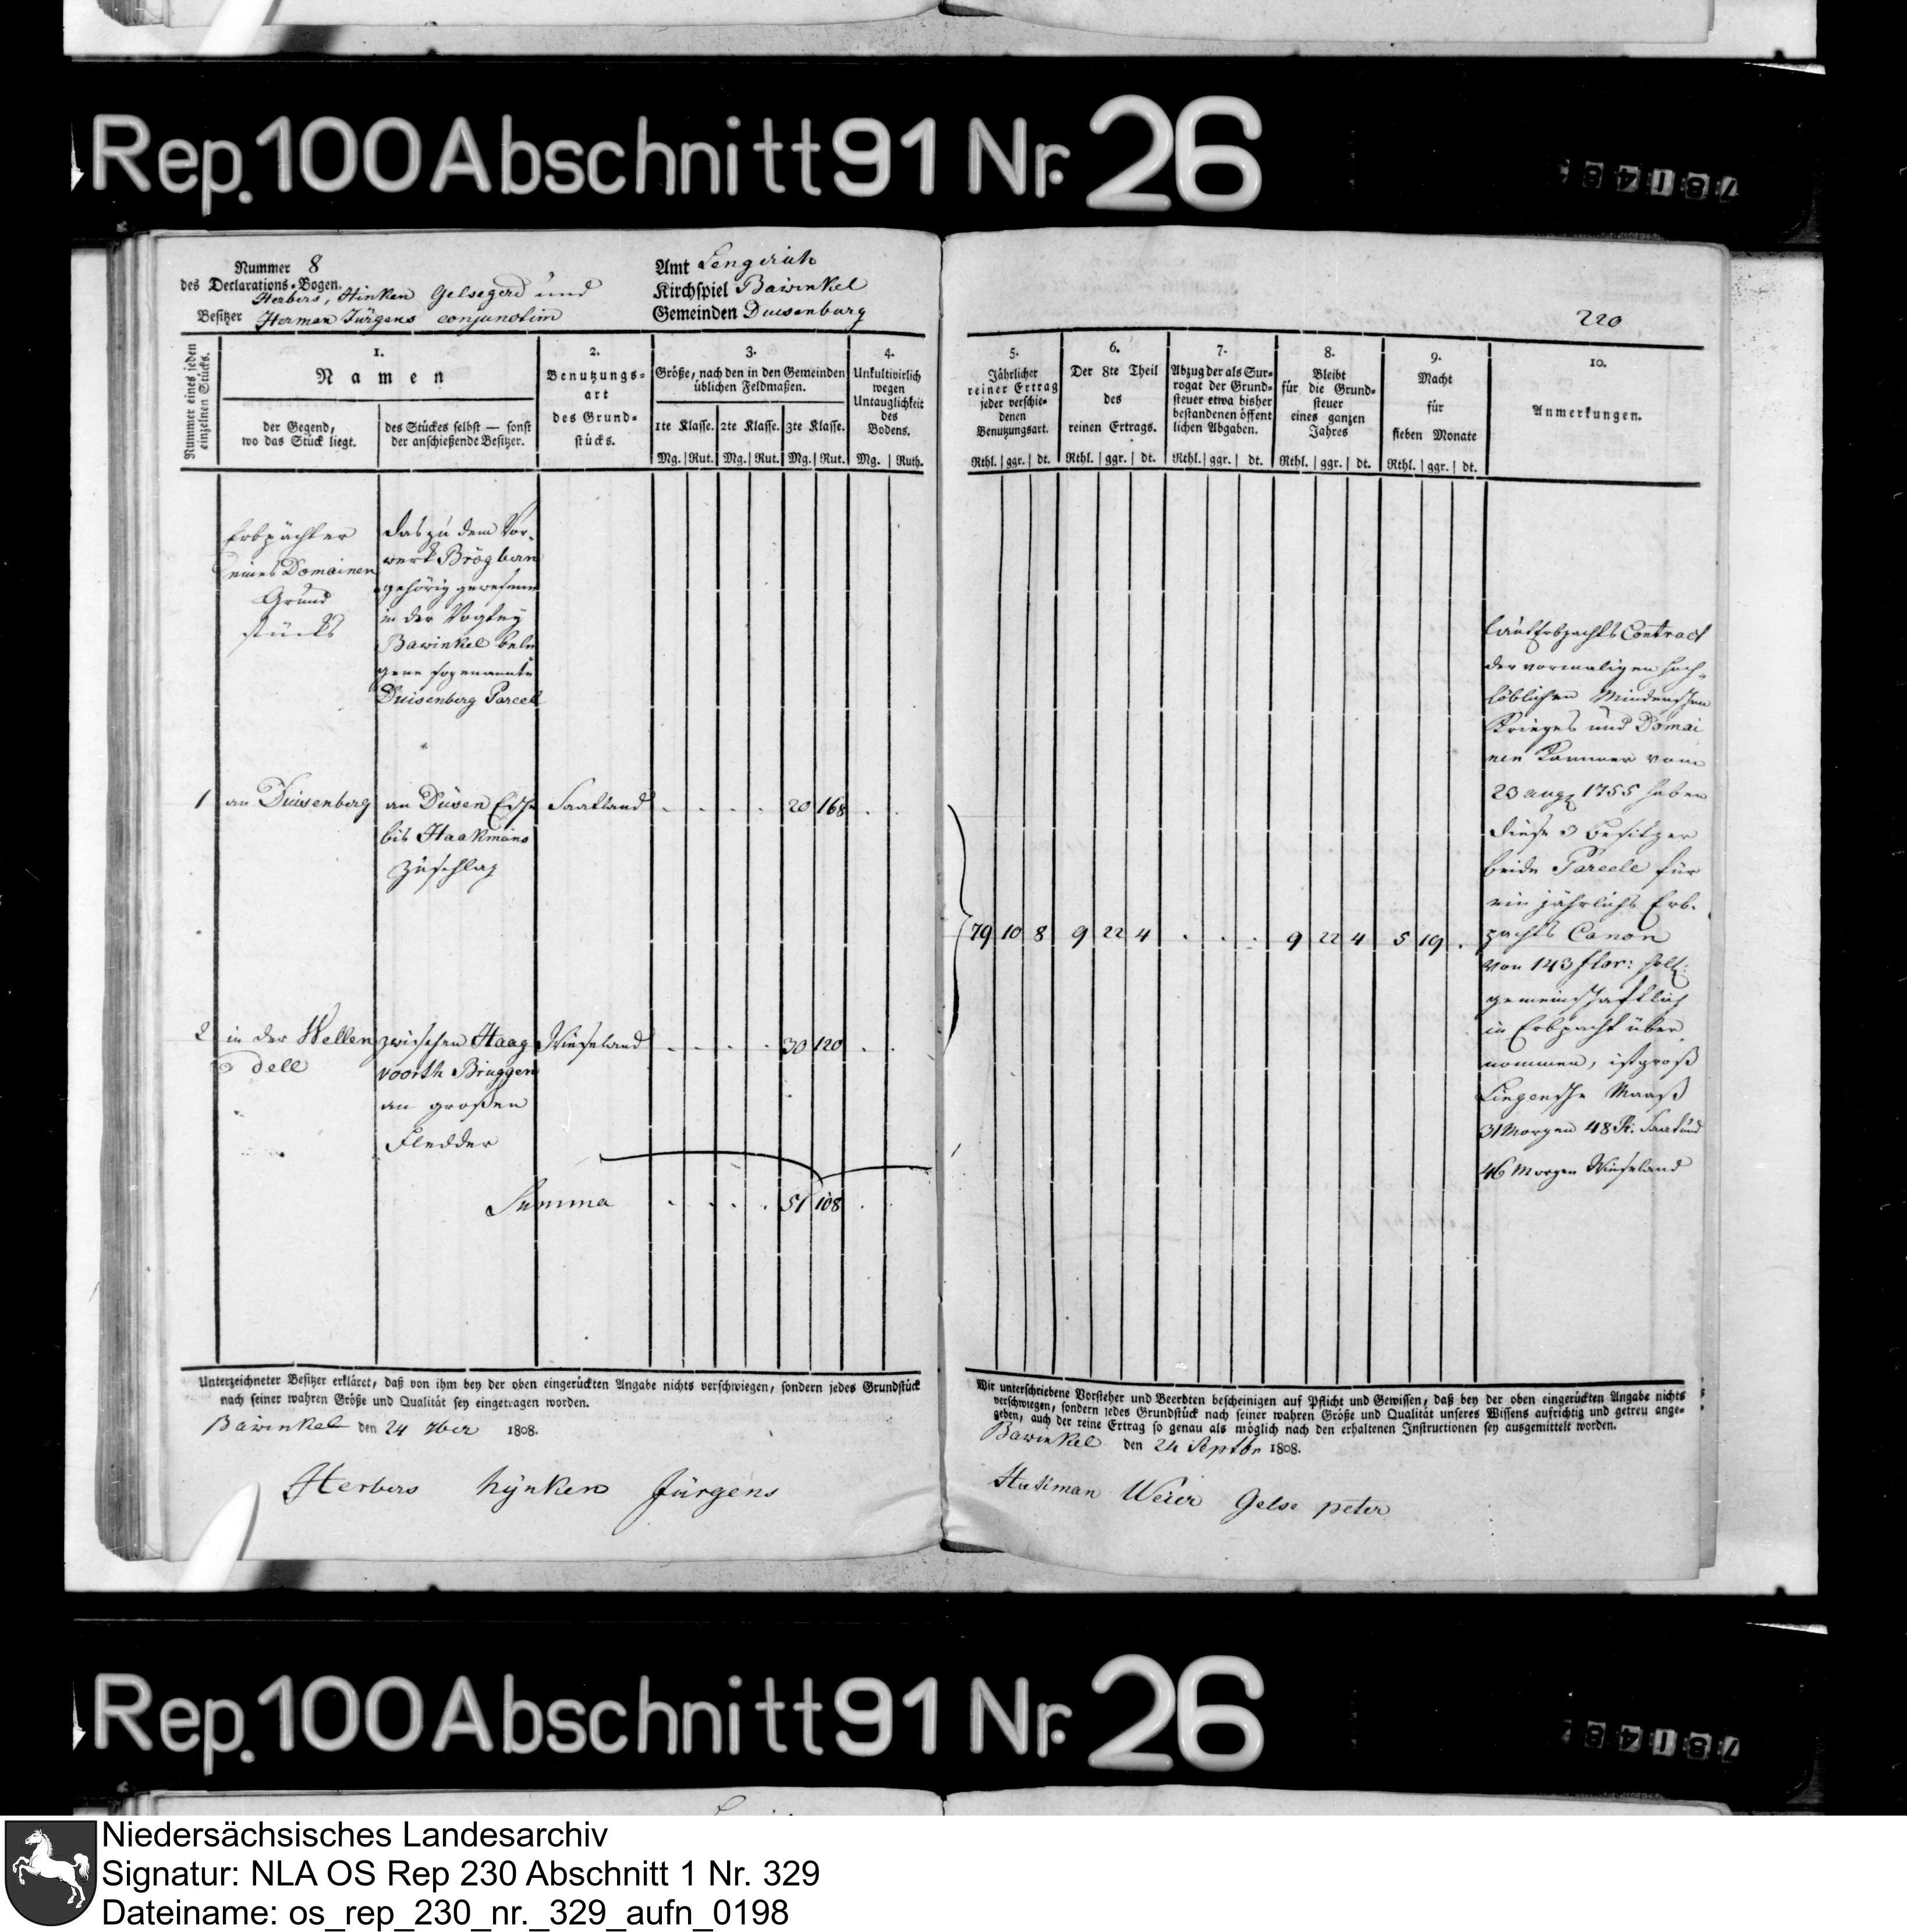 Rep. 100 Abschnitt 91 Nr. 26
78148
Nummer 8
des Declarations-Bogen.
Herbers, Hinken Gelsegerd und
Besitzer Herman Jürgens conjunctim
Amt Lengerich
Kirchspiel Bawinkel
Gemeinden Duisenburg
220
Nummer eines jeden einzelnen Stücks.
1.
Namen
der Gegend,
wo das Stück liegt.
des Stückes selbst — sonst
der anschießende Besitzer.
2.
Benutzungs-
art
des Grund-
stücks.
3.
Größe, nach den in den Gemeinden
üblichen Feldmaßen.
1te Klasse. 2te Klasse. 3te Klasse.
Mg. Rut. Mg. Rut. Mg. Rut.
4.
Unkultivirlich
wegen
Untauglichkeit
des
Bodens.
Mg. Ruth.
5.
Jährlicher
reiner Ertrag
jeder verschie-
denen
Benutzungsart.
Rthl. ggr. dt.
6.
Der 8te Theil
des
reinen Ertrags.
Rthl. ggr. dt.
7.
Abzug der als Sur-
rogat der Grund-
steuer etwa bisher
bestandenen öffent
lichen Abgaben.
Rthl. ggr. dt.
8.
Bleibt
für die Grund-
steuer
eines ganzen
Jahres
Rthl. ggr. dt.
9.
Macht
für
sieben Monate
Rthl. ggr. dt.
10.
Anmerkungen.
Erbpächter
eines Domainen
Grund
stücks
das zu dem Vor-
werk Brögbern
gehörig gewesene
in der Vogtey
Bawinkel bele
gene sogenannte
Duisenberg Parcel
1 an Duisenberg an Düsen Esch Saatland 20 168
bis Haakmans
Zuschlag
2 in der Wellen zwischen Haag Wieseland 30 120
dell voorth Bruggen
an großen
Fledder
Summa 51 108
79 10 8 9 22 4 9 22 4 5 19
laut Erbpachts Contract
der vormaligen hoch-
löblichen Mindenschen
Krieges und Domai
nen Kammer vom
23 aug 1755 haben
diese 3 Besitzer
beide Parcele für
ein jährlichs Erb-
pachts Canon
von 143 flor: holl:
gemeinschaftlich
in Erbpacht über
nommen, ist groß
Lingensche Maaß
31 Morgen 48 R. Saatland
46 Morgen Wieseland
Unterzeichneter Besitzer erkläret, daß von ihm bey der oben eingerückten Angabe nichts verschwiegen, sondern jedes Grundstück
nach seiner wahren Größe und Qualität sey eingetragen worden.
Bawinkel den 24 7ber 1808.
Herbers hÿnken Jürgens
Wir unterschriebene Vorsteher und Beerbten bescheinigen auf Pflicht und Gewissen, daß bey der oben eingerückten Angabe nichts
verschwiegen, sondern jedes Grundstück nach seiner wahren Größe und Qualität unseres Wissens aufrichtig und getreu ange-
geben, auch der reine Ertrag so genau als möglich nach den erhaltenen Instructionen sey ausgemittelt worden.
Bawinkel den 24 Septbr 1808.
Weier Gelse peter
Rep. 100 Abschnitt 91 Nr. 26
78148
Niedersächsisches Landesarchiv
Signatur: NLA OS Rep 230 Abschnitt 1 Nr. 329
Dateiname: os_rep_230_nr._329_aufn_0198